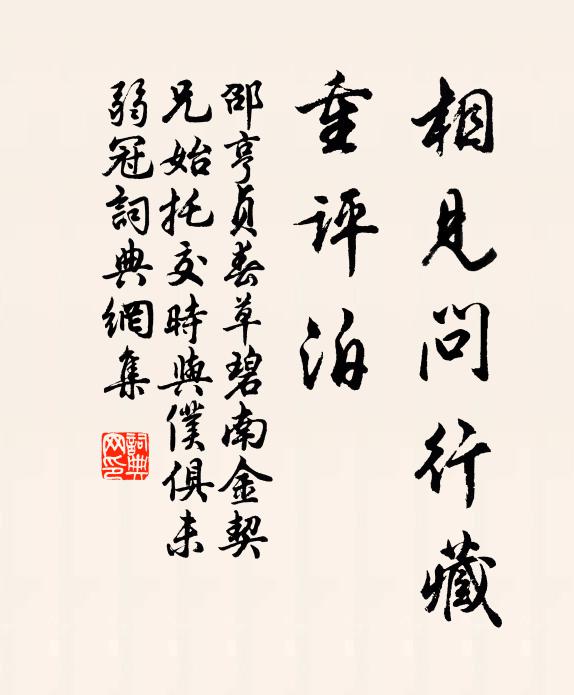 相見問行藏
重評泊
邵亨貞春草碧南金契
兄始托交時與僕俱未
弱冠詞典網集
詞典
网印